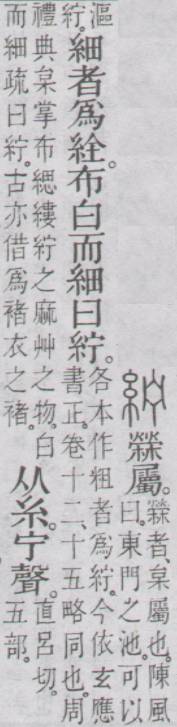 紵 檾屬。
檾者、枲屬也。陳風
曰東門之池。可以
漚
紵。
細者爲絟。布白而細曰紵。
各本作粗者爲紵。今依玄應
書正。卷十二、十五略同也。周
禮典枲掌布緦縷紵之麻艸之物。白
而細疏曰紵。古亦借爲褚衣之褚。
从糸。宁聲。
直呂切。
五部。